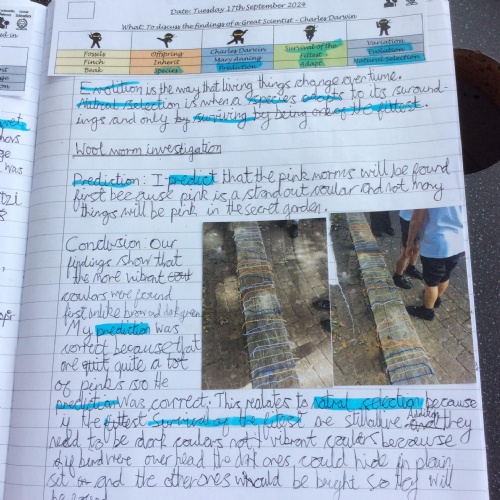 Date: Tuesday 17th September 2024
What: To discuss the findings of a Great Scientist - Charles Darwin
Fossils Offspring Charles Darwin Survival of the Fittest Variation
Finch Inherit Mary Anning Evolution
Beak Species Prediction Adapt Natural Selection
Evolution is the way that living things change over time.
Natral selection is when a species adapts to its suround-
ings and only by surviving by being one of the fittest.
Wool worm investigation
Prediction: I predict that the pink worms will be found
first because pink is a standout coular and not many
things will be pink in the secret garden.
Conclusion: Our
findings show that
the more vibrant
coulars were found
first unlike brown and dark green
My prediction was
correct because that
one quit quite a lot
of pinks so the
prediction was correct. This realates to natral selection because
Survival of the fittest are still alive and they
need to be dark coulars not vibrant coulars because
if a bird were over head the dark ones could hide in plain
sit and the other ones would be bright. So they will
be